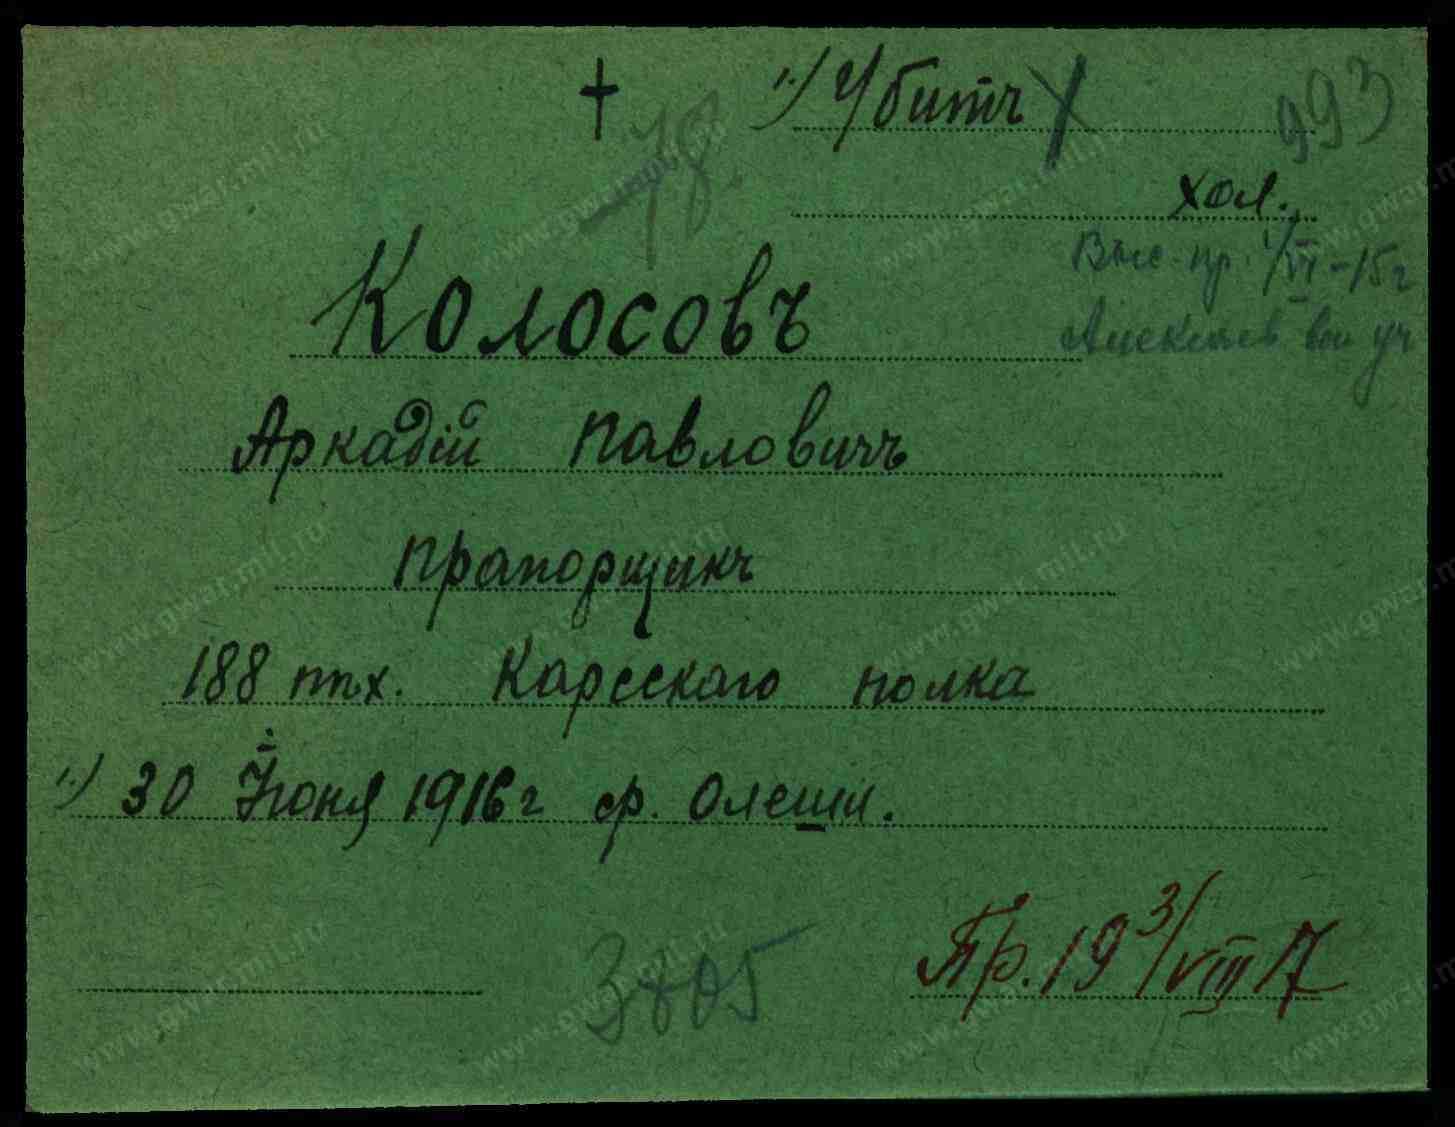 1.) Убитъ 993
78
хол.
Выс. пр. 1/VI-15 г
Алексѣев. вои уч
Колосовъ
Аркадій Павловичъ
Прапорщикъ
188 пѣх. Карсскаго полка
1.) 30 Іюня 1916 г ф. Олеши.
Пр. 19 3/VIII 17
3805
www.gwar.mil.ru